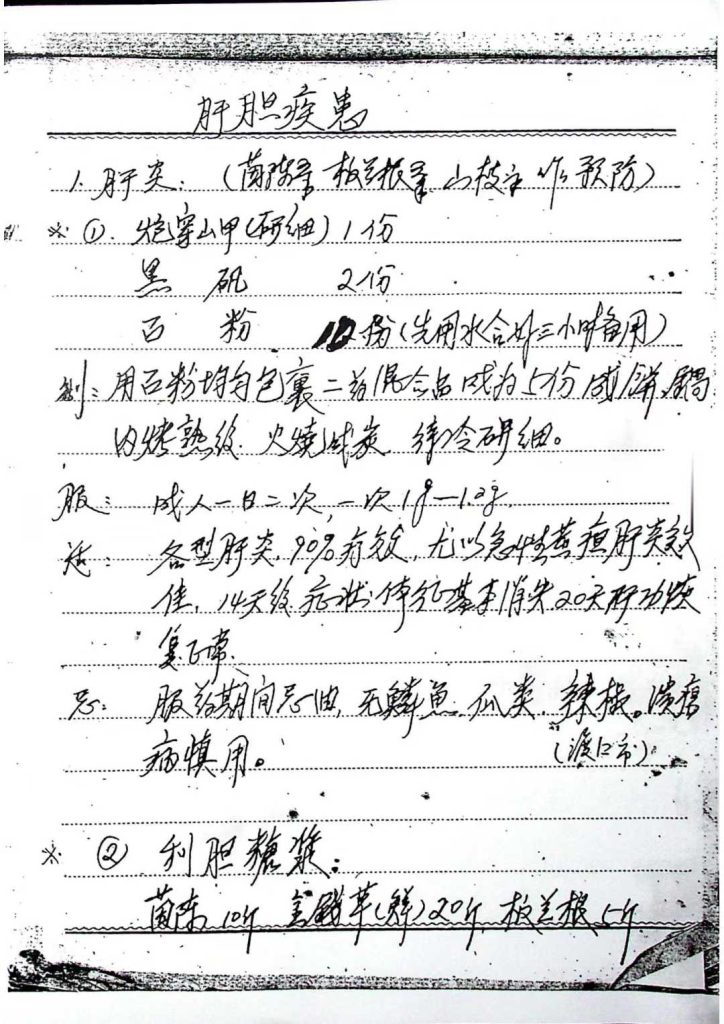 肝胆疾患
1. 肝炎: (茵陈 板兰根 山枝 作预防)
※ ①. 炮穿山甲(研细) 1份
黑 矾 2份
面 粉 10份(先用水合好三小时备用)
制: 用面粉均匀包裹二药混合品成为5份 成饼 锅
内烤熟后 火烧成炭 待冷研细。
服: 成人一日二次, 一次1g—1.2g.
各型肝炎, 90%有效, 尤以急性黄疸肝炎效
佳, 14天后症状体征基本消失 20天肝功恢
复正常.
忌: 服药期间忌油, 无鳞鱼, 瓜类, 辣椒。溃疡
病慎用。 (渡口市)
※ ② 利胆糖浆:
茵陈10斤 金钱草(鲜)20斤, 板兰根5斤